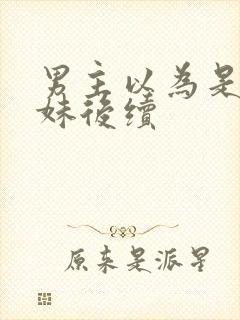 男主以為是
妹後續
原来是派星